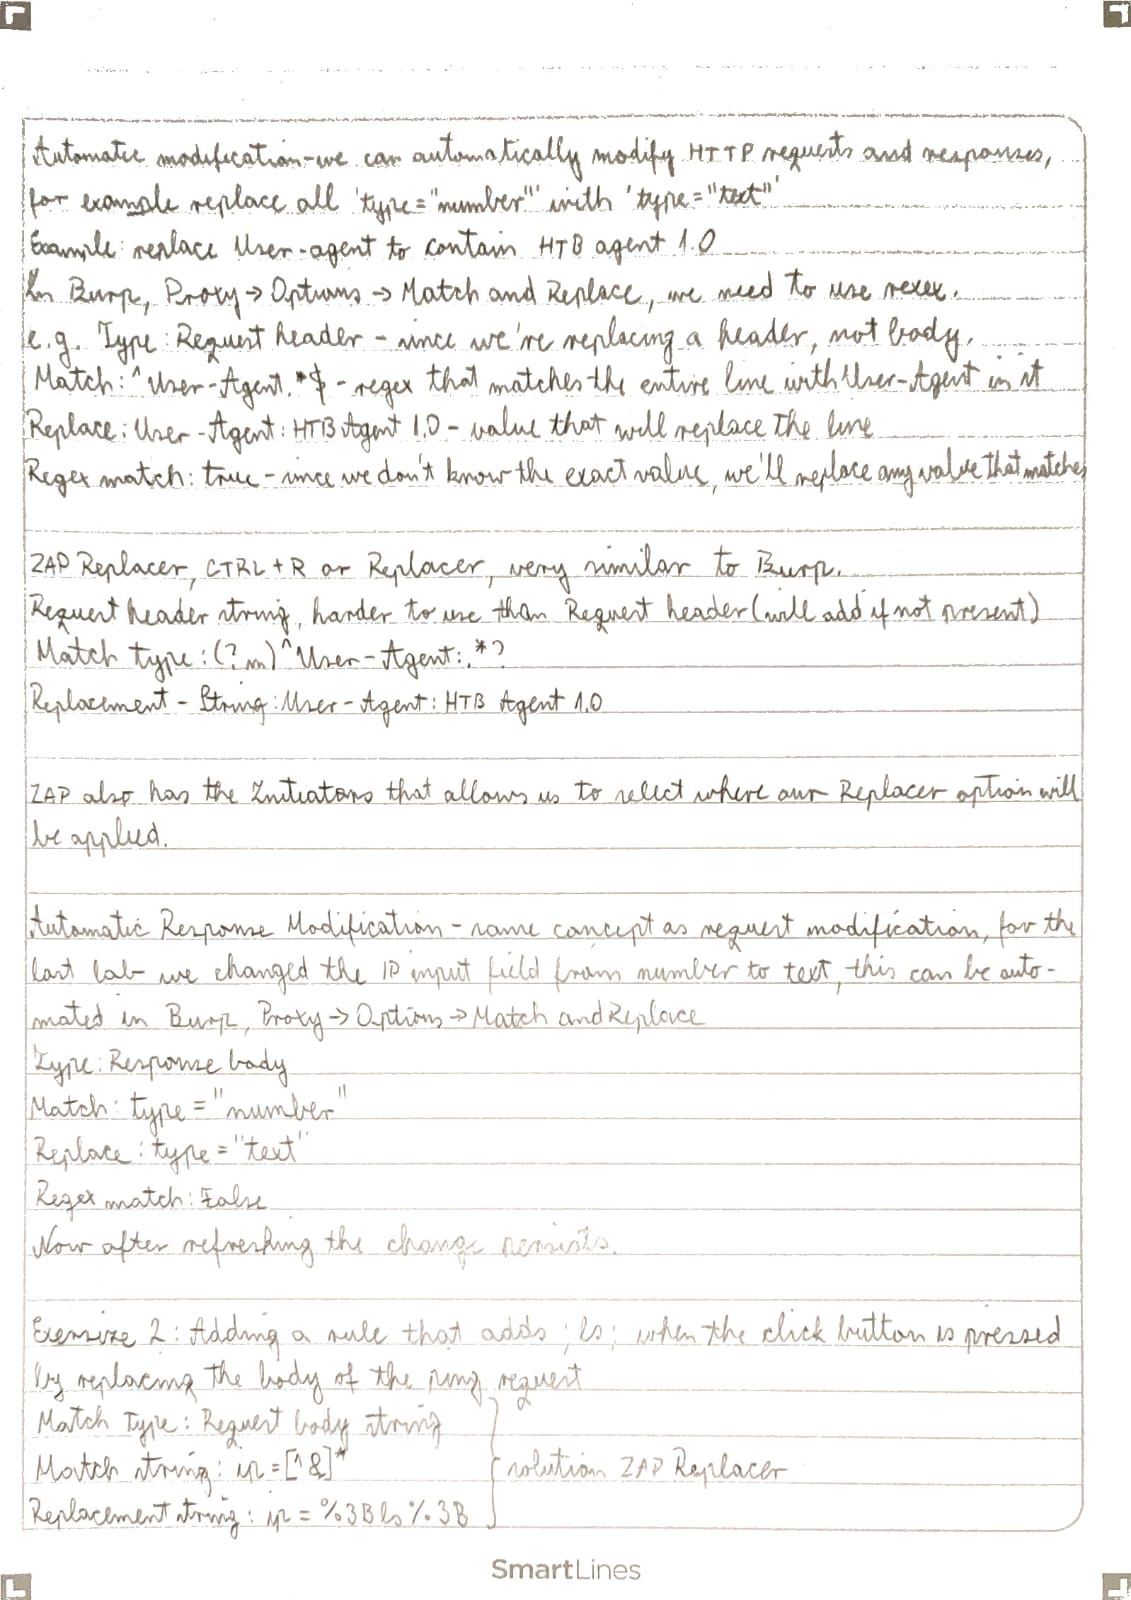 Automatic modification - we can automatically modify HTTP requests and responses,
for example replace all 'type="number"' with 'type="text"'
Example: replace User-agent to contain HTB agent 1.0
In Burp, Proxy → Options → Match and Replace, we need to use rexex.
e.g. Type: Request header - since we're replacing a header, not body.
Match: ^User-Agent.*$ - regex that matches the entire line with User-Agent in it
Replace: User-Agent: HTB Agent 1.0 - value that will replace the line
Regex match: true - since we don't know the exact value, we'll replace any value that matches
ZAP Replacer, CTRL+R or Replacer, very similar to Burp.
Request header string, harder to use than Request header (will add if not present)
Match type: (?m)^User-Agent:.*?
Replacement - String: User-Agent: HTB Agent 1.0
ZAP also has the Initiators that allows us to select where our Replacer option will
be applied.
Automatic Response Modification - same concept as request modification, for the
last lab we changed the IP input field from number to text, this can be auto-
mated in Burp, Proxy → Options → Match and Replace
Type: Response body
Match: type="number"
Replace: type="text"
Regex match: False
Now after refreshing the change persists.
Exersize 2: Adding a rule that adds ;ls; when the click button is pressed
by replacing the body of the ping request
Match Type: Request body string
Match string: ip=[^&]*
solution ZAP Replacer
Replacement string: ip=%3Bls%3B
SmartLines